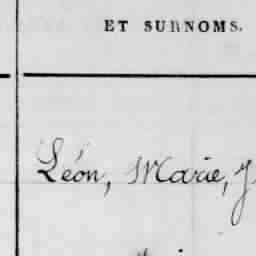 ET SURNOMS.
Léon, Marie, J